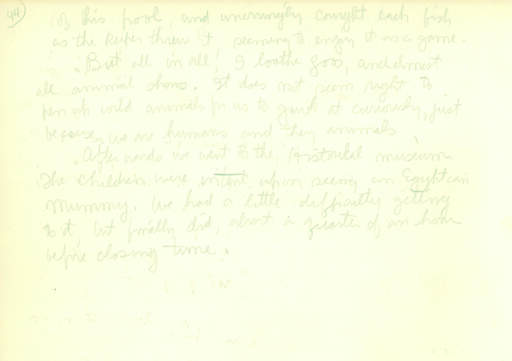 44
of his pool, and unerringly caught each fish
as the keeper threw it seeming to enjoy it as a game.
But all in all! I loathe zoos, and almost
all animal shows. It does not seem right to
pen up wild animals for us to gawk at curiously, just
because we are humans and they animals.
Afterwards we went to the Historical museum
The children were intent upon seeing an Egyptian
mummy. We had a little difficulty getting
to it, but finally did, about a quarter of an hour
before closing time.